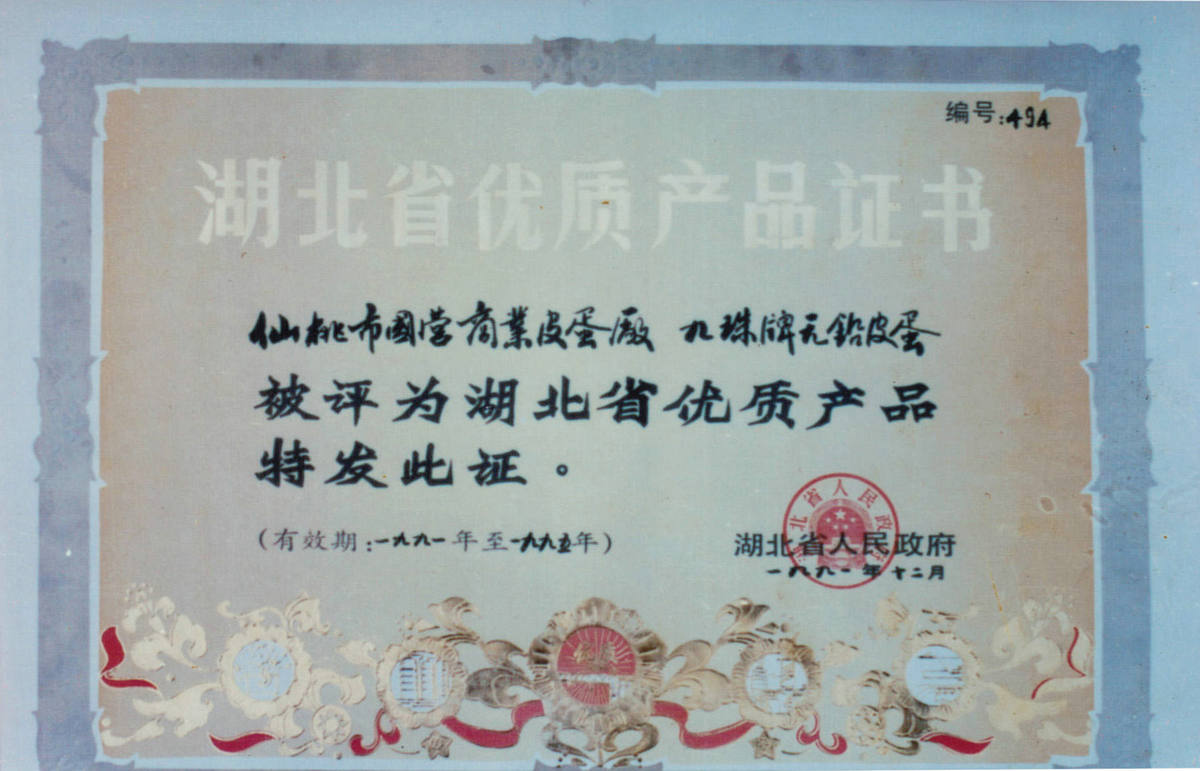 编号:494
湖北省优质产品证书
仙桃市國营商業皮蛋廠 九珠牌无鉛皮蛋
被评为湖北省优质产品
特发此证。
(有效期:一九九一年至一九九五年)
湖北省人民政府
一九九一年十二月
湖北省人民政府